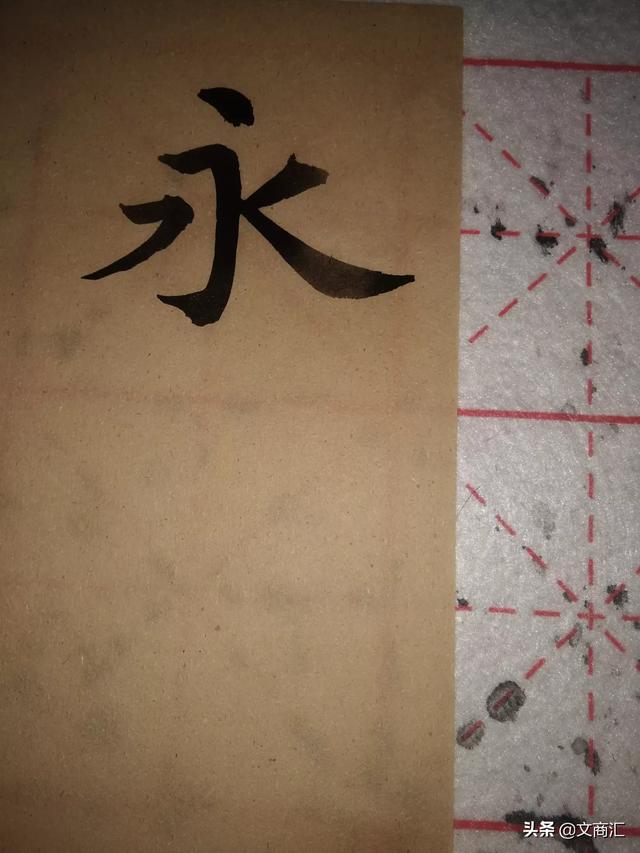 永
头条 @文商汇